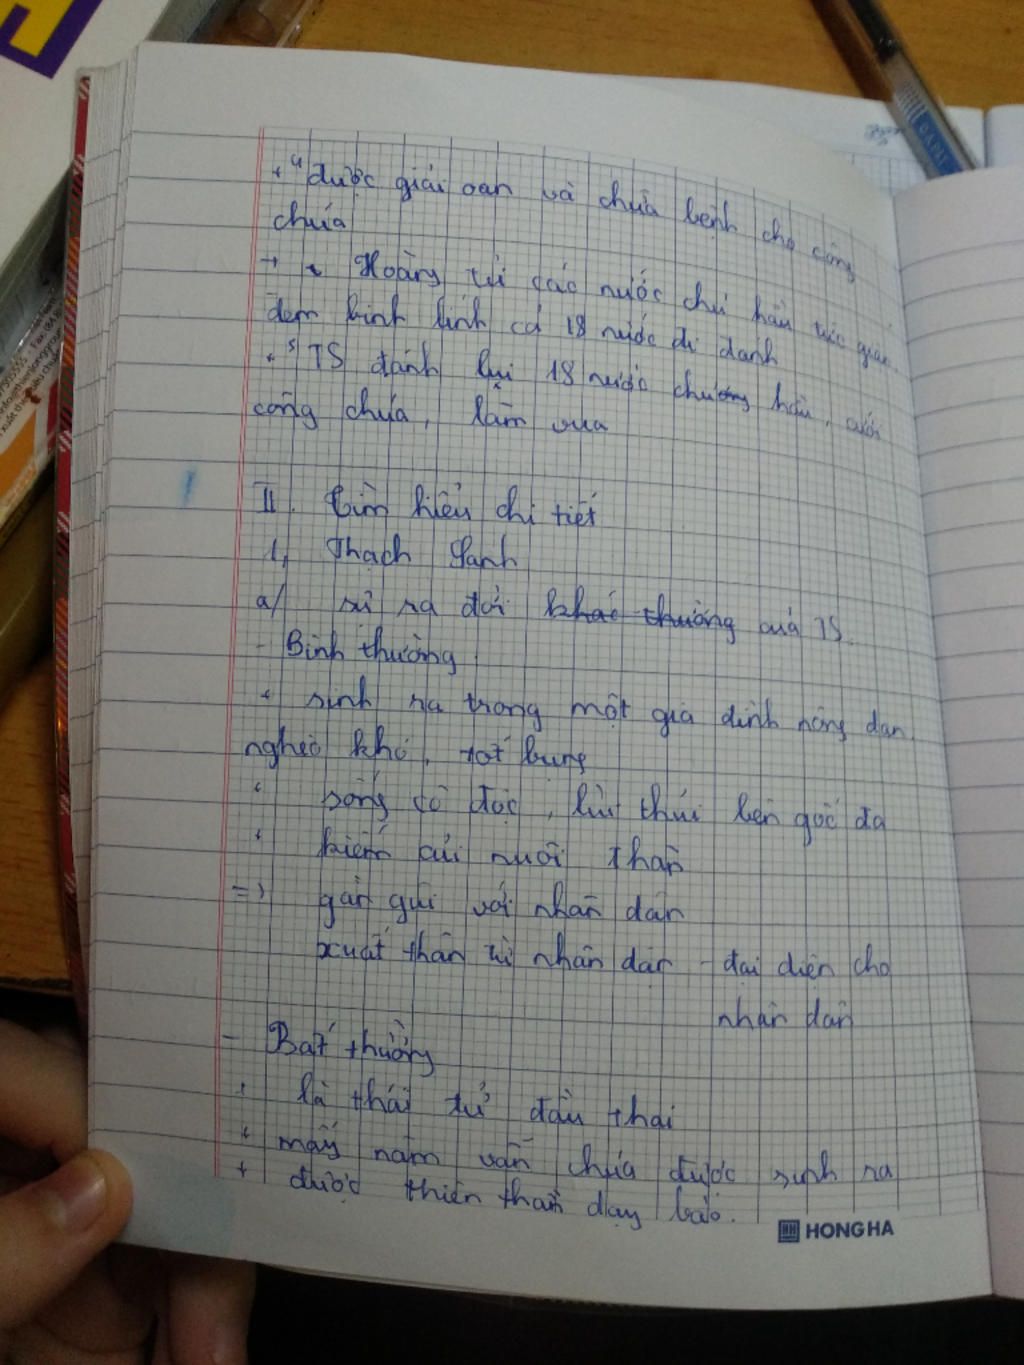 + được giải oan và chữa bệnh cho công
chúa
+ Hoàng tử các nước chư hầu tức giận
đem binh lính cả 18 nước đi đánh
+ TS đánh lui 18 nước chương hầu, cưới
công chúa, làm vua
II. Tìm hiểu chi tiết
1, Thạch Sanh
a/ sự ra đời khác thường của TS.
- Bình thường
+ sinh ra trong một gia đình nông dân
nghèo khó, tốt bụng
+ sống cô độc, lủi thủi bên gốc đa
+ kiếm củi nuôi thân
=> gần gũi với nhân dân
xuất thân từ nhân dân - đại diện cho
nhân dân
- Bất thường
+ là thái tử đầu thai
+ mấy năm vẫn chưa được sinh ra
+ được thiên thần dạy bảo.
HONG HA